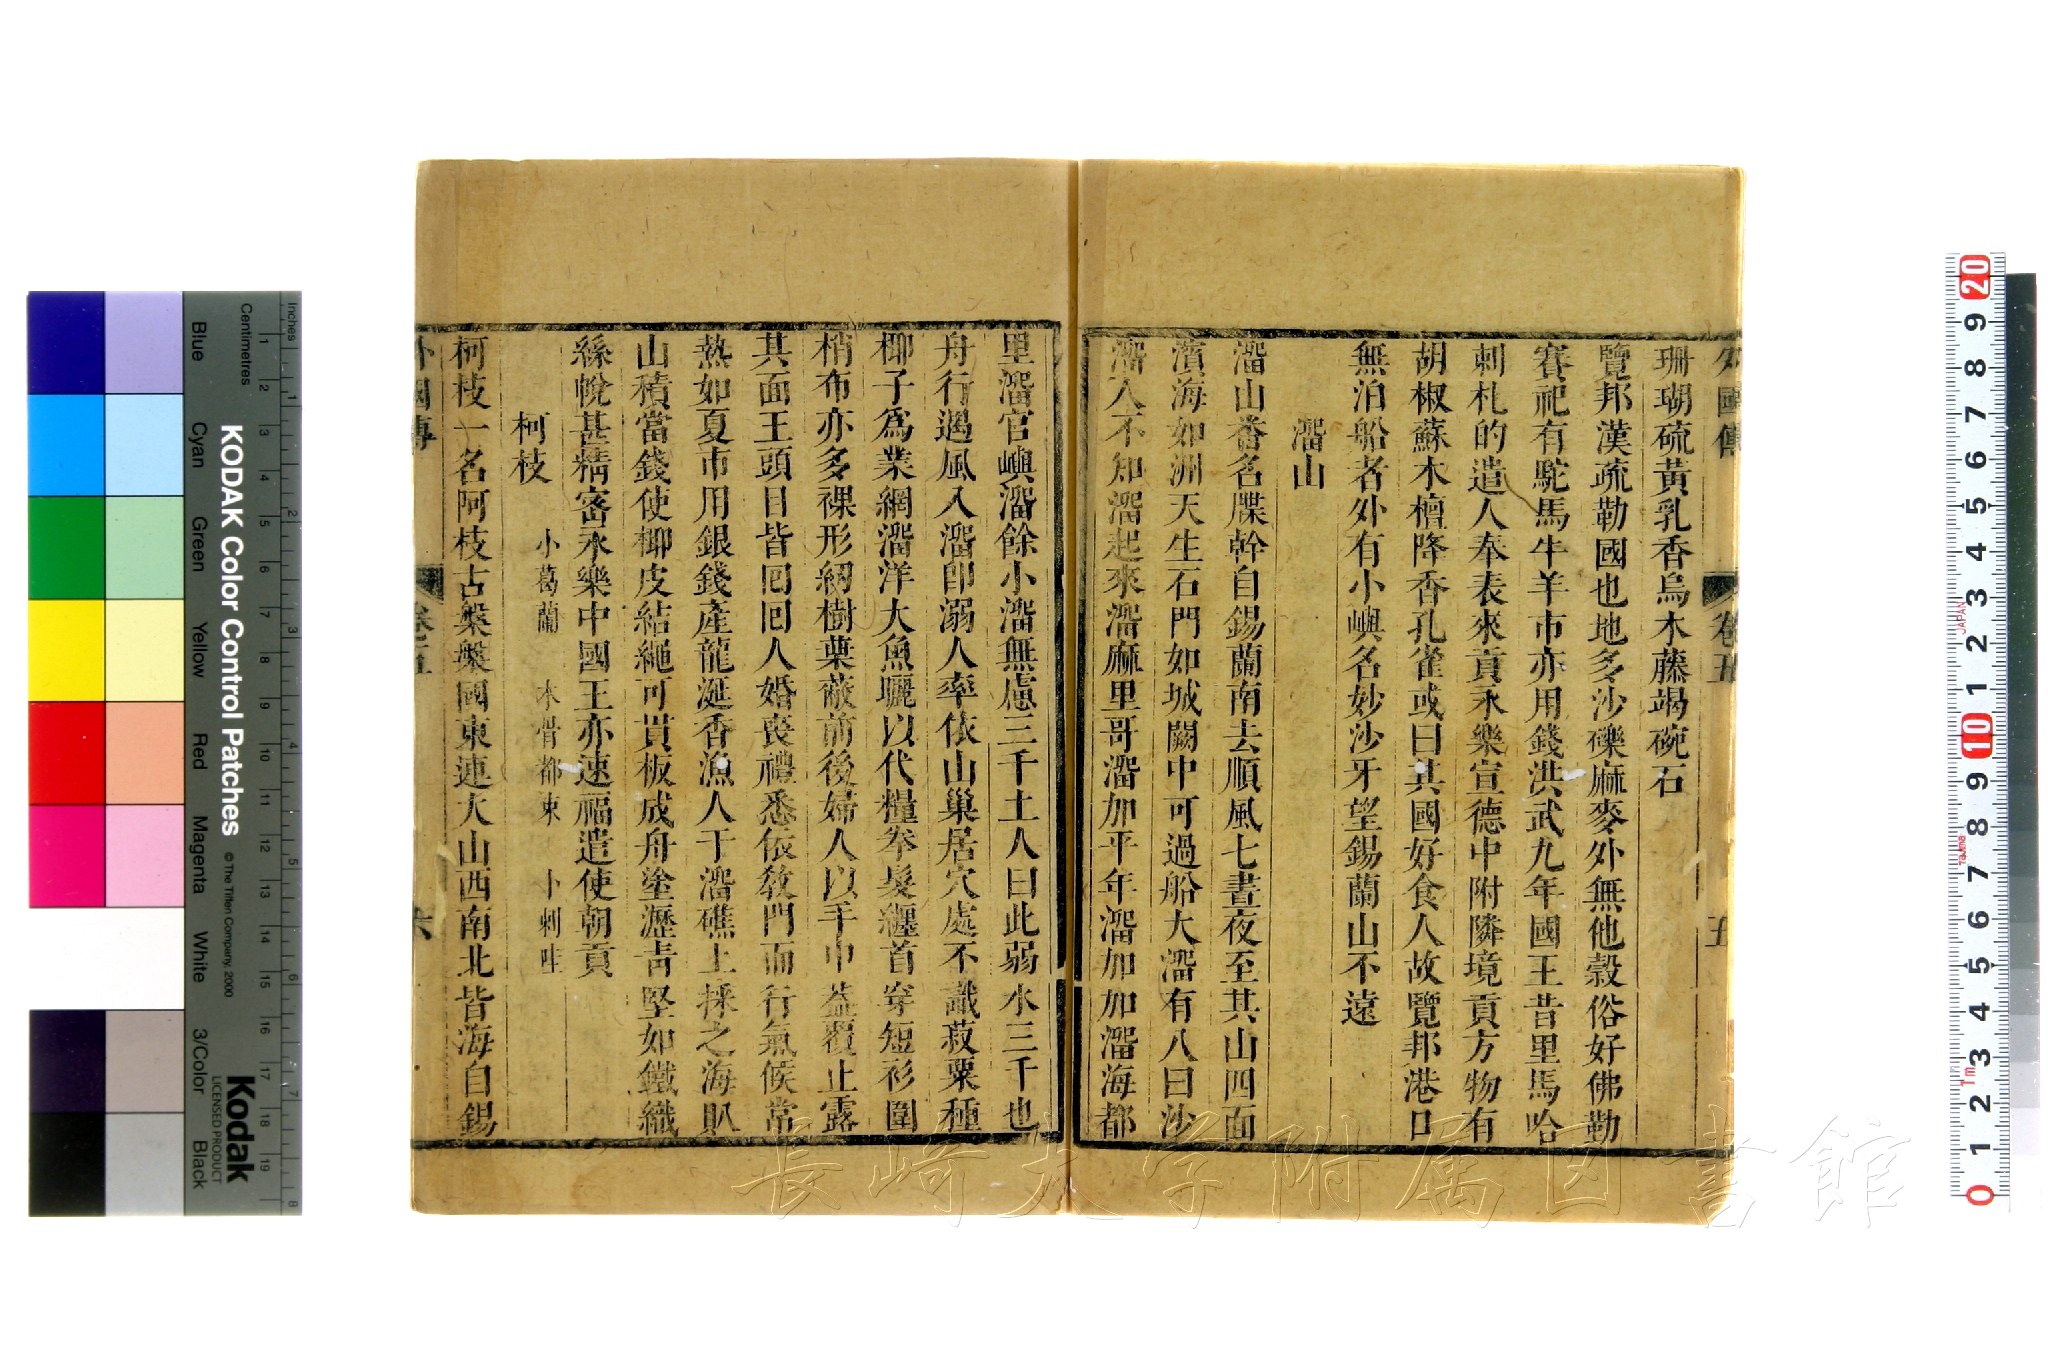 外國傳 卷五 五
珊瑚硫黃乳香烏木藤竭碗石
覽邦漢疏勒國也地多沙礫麻麥外無他穀俗好佛勤
賽祀有駝馬牛羊市亦用錢洪武九年國王昔里馬哈
剌札的遣人奉表來貢永樂宣德中附隣境貢方物有
胡椒蘇木檀降香孔雀或曰其國好食人故覽邦港口
無泊船者外有小嶼名妙沙牙望錫蘭山不遠
溜山
溜山番名牒幹自錫蘭南去順風七晝夜至其山四面
濱海如洲天生石門如城闕中可過船大溜有八曰沙
溜人不知溜起來溜麻里哥溜加平年溜加加溜海都
里溜官嶼溜餘小溜無慮三千土人曰此弱水三千也
舟行遇風入溜卽溺人率依山巢居穴處不識菽粟種
椰子爲業網溜洋大魚曬以代糧拳髮纏首穿短衫圍
梢布亦多裸形紉樹葉蔽前後婦人以手巾葢覆止露
其面王頭目皆囘囘人婚喪禮悉依敎門而行氣候常
熱如夏市用銀錢產龍涎香漁人于溜礁上採之海𧴩
山積當錢使椰皮結繩可貫板成舟塗瀝靑堅如鐵織
絲帨甚精密永樂中國王亦速福遣使朝貢
柯枝 小葛蘭 木骨都束 卜剌哇
柯枝一名阿枝古槃槃國東連大山西南北皆海自錫
外國傳 卷之五 六
KODAK Color Control Patches
© The Tiffen Company, 2000
Kodak
LICENSED PRODUCT
Inches
Centimetres
Blue Cyan Green Yellow Red Magenta White 3/Color Black
長崎大学附属図書館
JAPAN